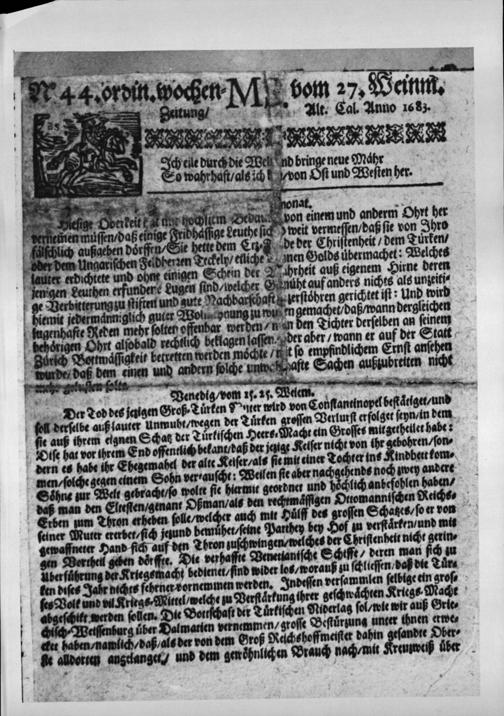 No 44. ordin. wochen-
Zeitung/
vom 27. Weinm.
Alt. Cal. Anno 1683.
Ich eile durch die Welt und bringe neue Mähr
So wahrhaft/als ich /von Ost und Westen her.
Hiesige Oberkeit von einem und anderm Ohrt her
vernemen müssen/daß einige Fridhässige Leuthe sich weit vermessen/daß sie von Ihro
fälschlich außgeben dörffen/Sie hette dem Ertz- de der Christenheit/dem Türken/
oder dem Ungarischen Feldherzen Teckely/etliche Golds übermachet: Welches
lauter erdichtete und ohne einigen Schein der Wahrheit auß eigenem Hirne deren
jenigen Leuthen erfundene Lugen sind/welcher Gemüht auf anders nichts als unzeiti-
ge Verbitterung zu stiften und gute Nachbarschaft zerstöhren gerichtet ist: Und wird
hiemit jedermänniglich guter zu gemachet/daß/wann derglichen
lugenhafte Reden mehr solten offenbar werden/ den Tichter derselben an seinem
behörigen Ohrt alsobald rechtlich beklagen lassen der aber/wann er auf der Statt
Zürich Bottmässigkeit betretten werden möchte/ so empfindlichem Ernst ansehen
wurde/daß dem einen und andern solche Sachen außzubreiten nicht
mehr gelusten solte.
Venedig/vom 15. 25. Weinm.
Der Tod des jezigen Groß-Türken Muter wird von Constantinopel bestätiget/und
soll derselbe auß lauter Unmuht/wegen der Türken grossen Verlurst erfolget seyn/in dem
sie auß ihrem eignen Schatz der Türkischen Heers-Macht ein Grosses mitgetheilet habe:
Dise hat vor ihrem End offentlich bekant/daß der jezige Keiser nicht von ihr gebohren/son-
dern es habe ihr Ehegemahel der alte Keiser/als sie mit einer Tochter ins Kindbett kom-
men/solche gegen einem Sohn vertauscht: Weilen sie aber nachgehends noch zwey andere
Söhne zur Welt gebracht/so wolte sie hiermit geordnet und höchlich anbefohlen haben/
daß man den Eltesten/genant Oßman/als den rechtmässigen Ottomannischen Reichs-
Erben zum Thron erheben solle/welcher auch mit Hülff des grossen Schatzes/so er von
seiner Muter ererbet/sich jezund bemühet/seine Parthey bey Hof zu verstärken/und mit
gewaffneter Hand sich auf den Thron zuschwingen/welches der Christenheit nicht gerin-
gen Vortheil geben dörffte. Die verhaffte Venetianische Schiffe/deren man sich zu
Uberführung der Kriegsmacht bedienet/sind wider los/worauß zu schliessen/daß die Tür-
ken dieses Jahr nichts fehrner vornemmen werden. Indessen versammlen selbige ein gros-
ses Volk und vil Kriegs-Mittel/welche zu Verstärkung ihrer geschwächten Kriegs-Macht
abgeschikt werden sollen. Die Bottschaft der Türkischen Niderlag sol/wie wir auß Grie-
chisch-Weissenburg über Dalmatien vernemmen/grosse Bestürzung unter ihnen erwe-
cket haben/namlich/daß/als der von dem Groß Reichshoffmeister dahin gesandte Ober-
ste alldorten angelanget/und dem gewöhnlichen Brauch nach/mit Kreuzweiß über